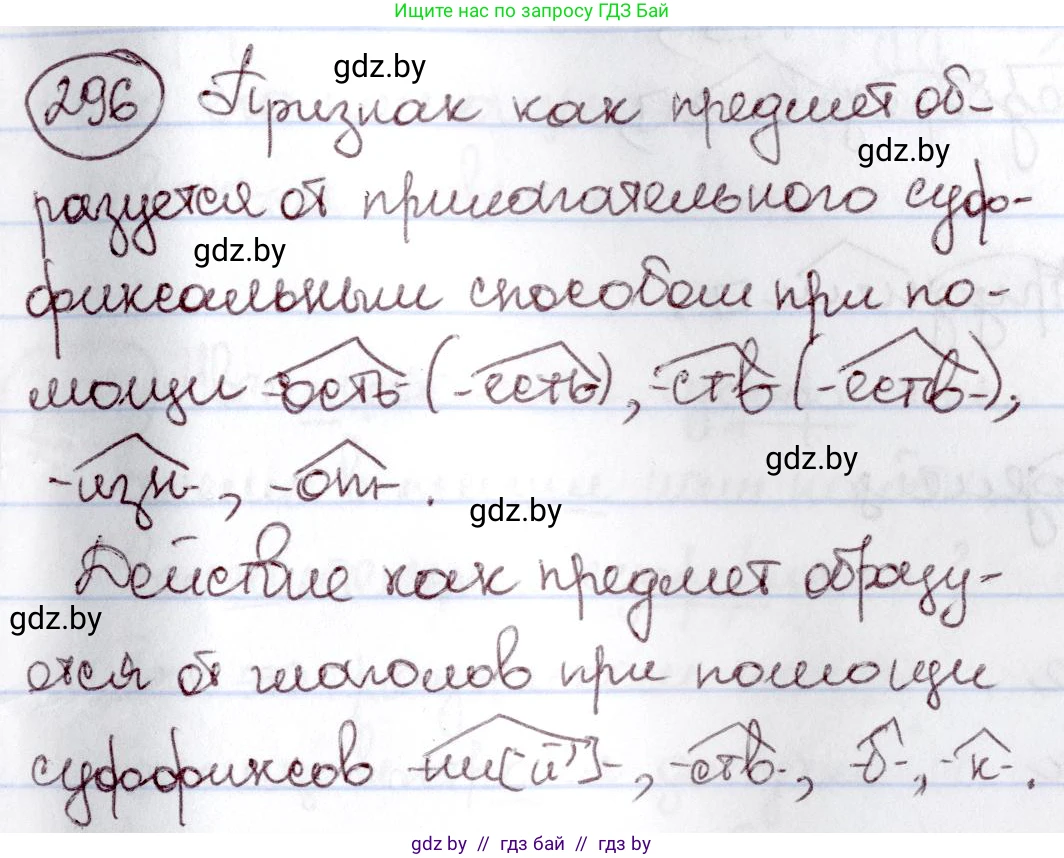 Ищите нас по запросу ГДЗ Бай
296 Признак как предмет об-
gdz.by
gdz.by
разуется от прилагательного суф-
gdz.by
фиксальным способом при по-
мощи -ость- (-есть), -ств (-еств-),
gdz.by
-изн-, -от-.
gdz.by
Действие как предмет образу-
gdz.by
ется от глаголов при помощи
суффиксов -ни[й']-, -ств-, -б-, -к-.
gdz.by // гдз бай // гдз by